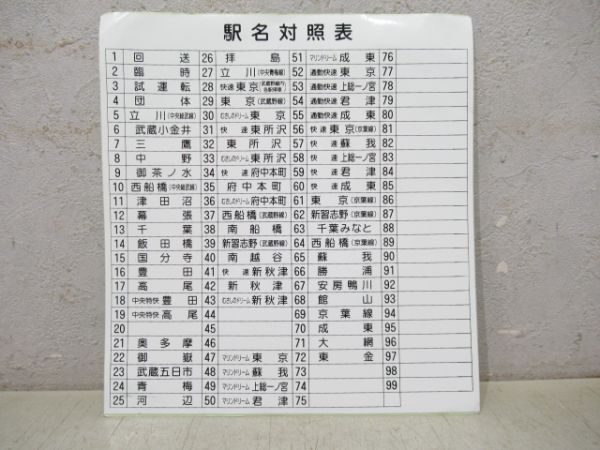 駅名対照表
1 回送 26 拝島 51 マリンドリーム 成東 76
2 臨時 27 立川(中央青梅線) 52 通勤快速 東京 77
3 試運転 28 快速 東京 53 通勤快速 上総一ノ宮 78
4 団体 29 東京(武蔵野線) 54 通勤快速 君津 79
5 立川(中央総武線) 30 むさしのドリーム 東京 55 通勤快速 成東 80
6 武蔵小金井 31 快速 東所沢 56 快速 東京(京葉線) 81
7 三鷹 32 東所沢 57 快速 蘇我 82
8 中野 33 むさしのドリーム 東所沢 58 快速 上総一ノ宮 83
9 御茶ノ水 34 快速 府中本町 59 快速 君津 84
10 西船橋(中央総武線) 35 府中本町 60 快速 成東 85
11 津田沼 36 むさしのドリーム 府中本町 61 東京(京葉線) 86
12 幕張 37 西船橋(武蔵野線) 62 新習志野(京葉線) 87
13 千葉 38 南船橋 63 千葉みなと 88
14 飯田橋 39 新習志野(武蔵野線) 64 西船橋(京葉線) 89
15 国分寺 40 南越谷 65 蘇我 90
16 豊田 41 快速 新秋津 66 勝浦 91
17 高尾 42 新秋津 67 安房鴨川 92
18 中央特快 豊田 43 むさしのドリーム 新秋津 68 館山 93
19 中央特快 高尾 44 69 京葉線 94
20 45 70 成東 95
21 奥多摩 46 71 大網 96
22 御嶽 47 マリンドリーム 東京 72 東金 97
23 武蔵五日市 48 マリンドリーム 蘇我 73 98
24 青梅 49 マリンドリーム 上総一ノ宮 74 99
25 河辺 50 マリンドリーム 君津 75